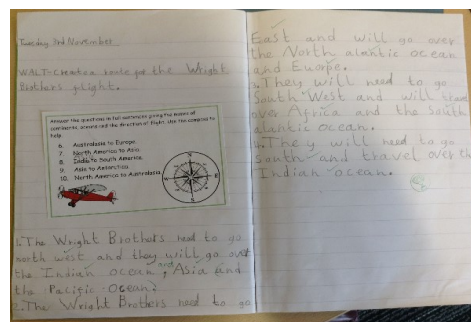 Tuesday 3rd November
WALT: Create a route for the Wright
Brothers flight.
Answer the questions in full sentences giving the names of
continents, oceans and the direction of flight. Use the compass to
help.
6. Australasia to Europe.
7. North America to Asia.
8. India to South America.
9. Asia to Antarctica.
10. North America to Australasia.
N
E
S
W
1. The Wright Brothers need to go
north west and they will go over
the Indian ocean, and Asia and
the Pacific Ocean.
2. The Wright Brothers need to go
East and will go over
the North alantic ocean
and Euorpe.
They will need to go
South West and will travel
over Africa and the South
alantic ocean.
They will need to go
south and travel over the
Indian ocean.